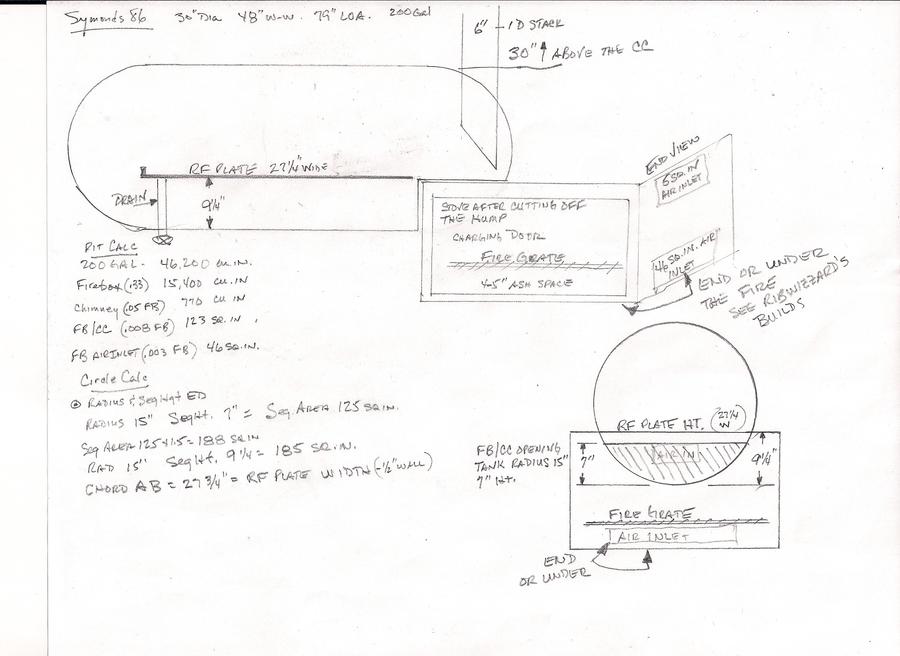 Symonds 86 30" Dia 48" W-W. 79" LOA. 200 Gal
6" I D STACK
30" ABOVE THE CC
RF PLATE 27 1/4" WIDE
DRAIN
9 1/4"
END VIEW
6 SQ. IN
AIR INLET
STOVE AFTER CUTTING OFF
THE HUMP
CHARGING DOOR
FIRE GRATE
4-5" ASH SPACE
46 SQ. IN. AIR
INLET
END OR UNDER
THE FIRE
SEE RIBWIZZARD'S
BUILDS
PIT CALC
200 GAL - 46,200 CU. IN.
Firebox (.33) 15,400 CU. IN
Chimney (.05 FB) 770 CU IN
FB/CC (.008 FB) 123 SQ. IN.
FB AIR INLET (.003 FB) 46 SQ. IN.
Circle Calc
RADIUS & Seg Hgt ED
RADIUS 15" Seg Ht. 7" = Seg. AREA 125 SQ IN.
Seg AREA 125 X 1.5 = 188 SQ IN
RAD 15" Seg Ht. 9 1/4 = 185 SQ. IN.
CHORD AB = 27 3/4" = RF PLATE WIDTH (-1/2" WALL)
RF PLATE HT. (27 1/4 W)
FB/CC OPENING
TANK RADIUS 15"
7" Ht.
7"
AIR IN
9 1/4"
FIRE GRATE
AIR INLET
END
OR UNDER